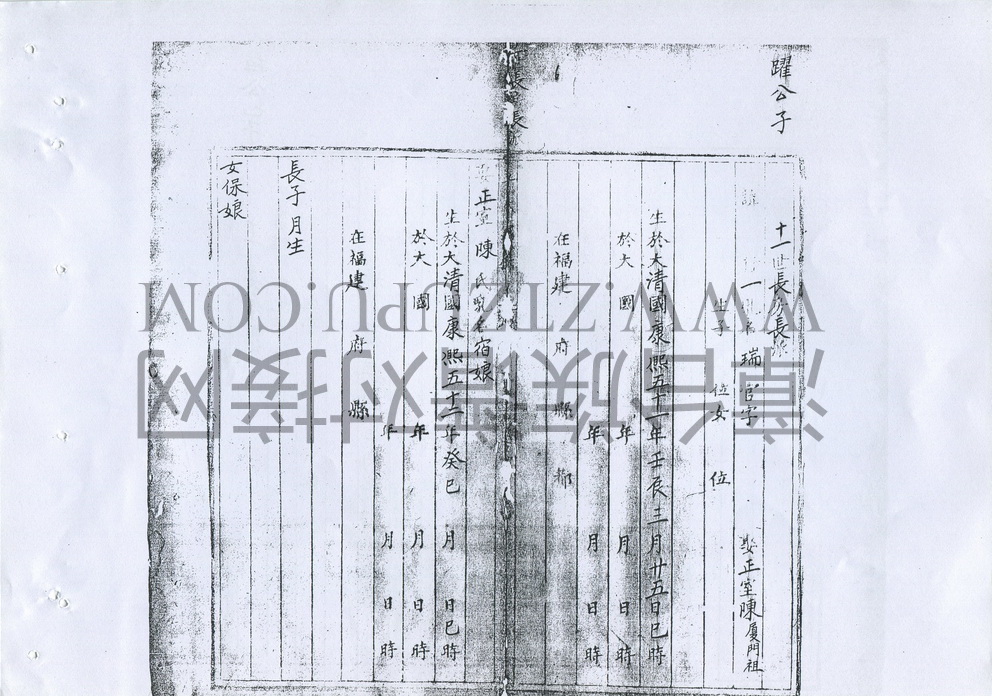 躍公子
十一世長房長
諱 一 名 瑞官字 娶正室陳厦門祖
生子 位女 位
生於大清國康熙五十一年壬辰三月廿五日巳時
於大 國 年 月 日 時
年 月 日 時
在福建 府 縣 鄉
娶正室陳氏乳名宿娘
生於大清國康熙五十二年癸巳 月 日巳時
於大 國 年 月 日 時
年 月 日 時
在福建 府 縣
長子月生
女保娘
WWW.ZTZUPU.COM
漳台族譜对接网